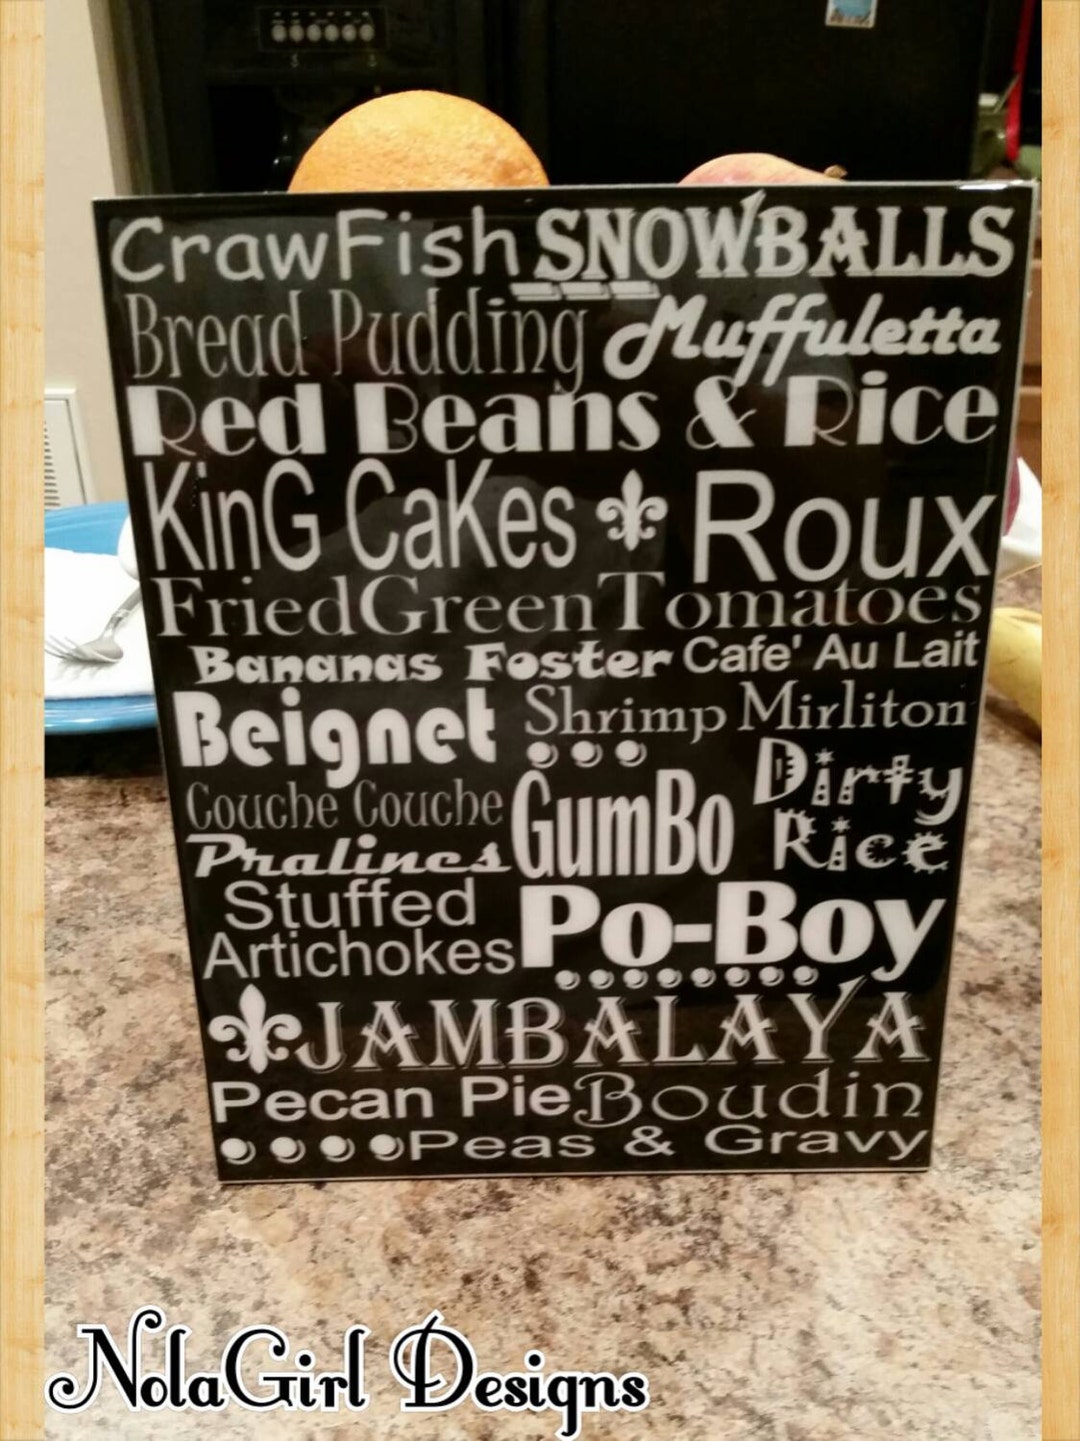 CrawFish SNOWBALLS
Bread Pudding Muffuletta
Red Beans & Rice
KinG CaKes Roux
FriedGreenTomatoes
Bananas Foster Cafe' Au Lait
Beignet Shrimp Mirliton
Couche Couche GumBo Dirty Rice
Pralines
Stuffed Artichokes Po-Boy
JAMBALAYA
Pecan Pie Boudin
Peas & Gravy
NolaGirl Designs